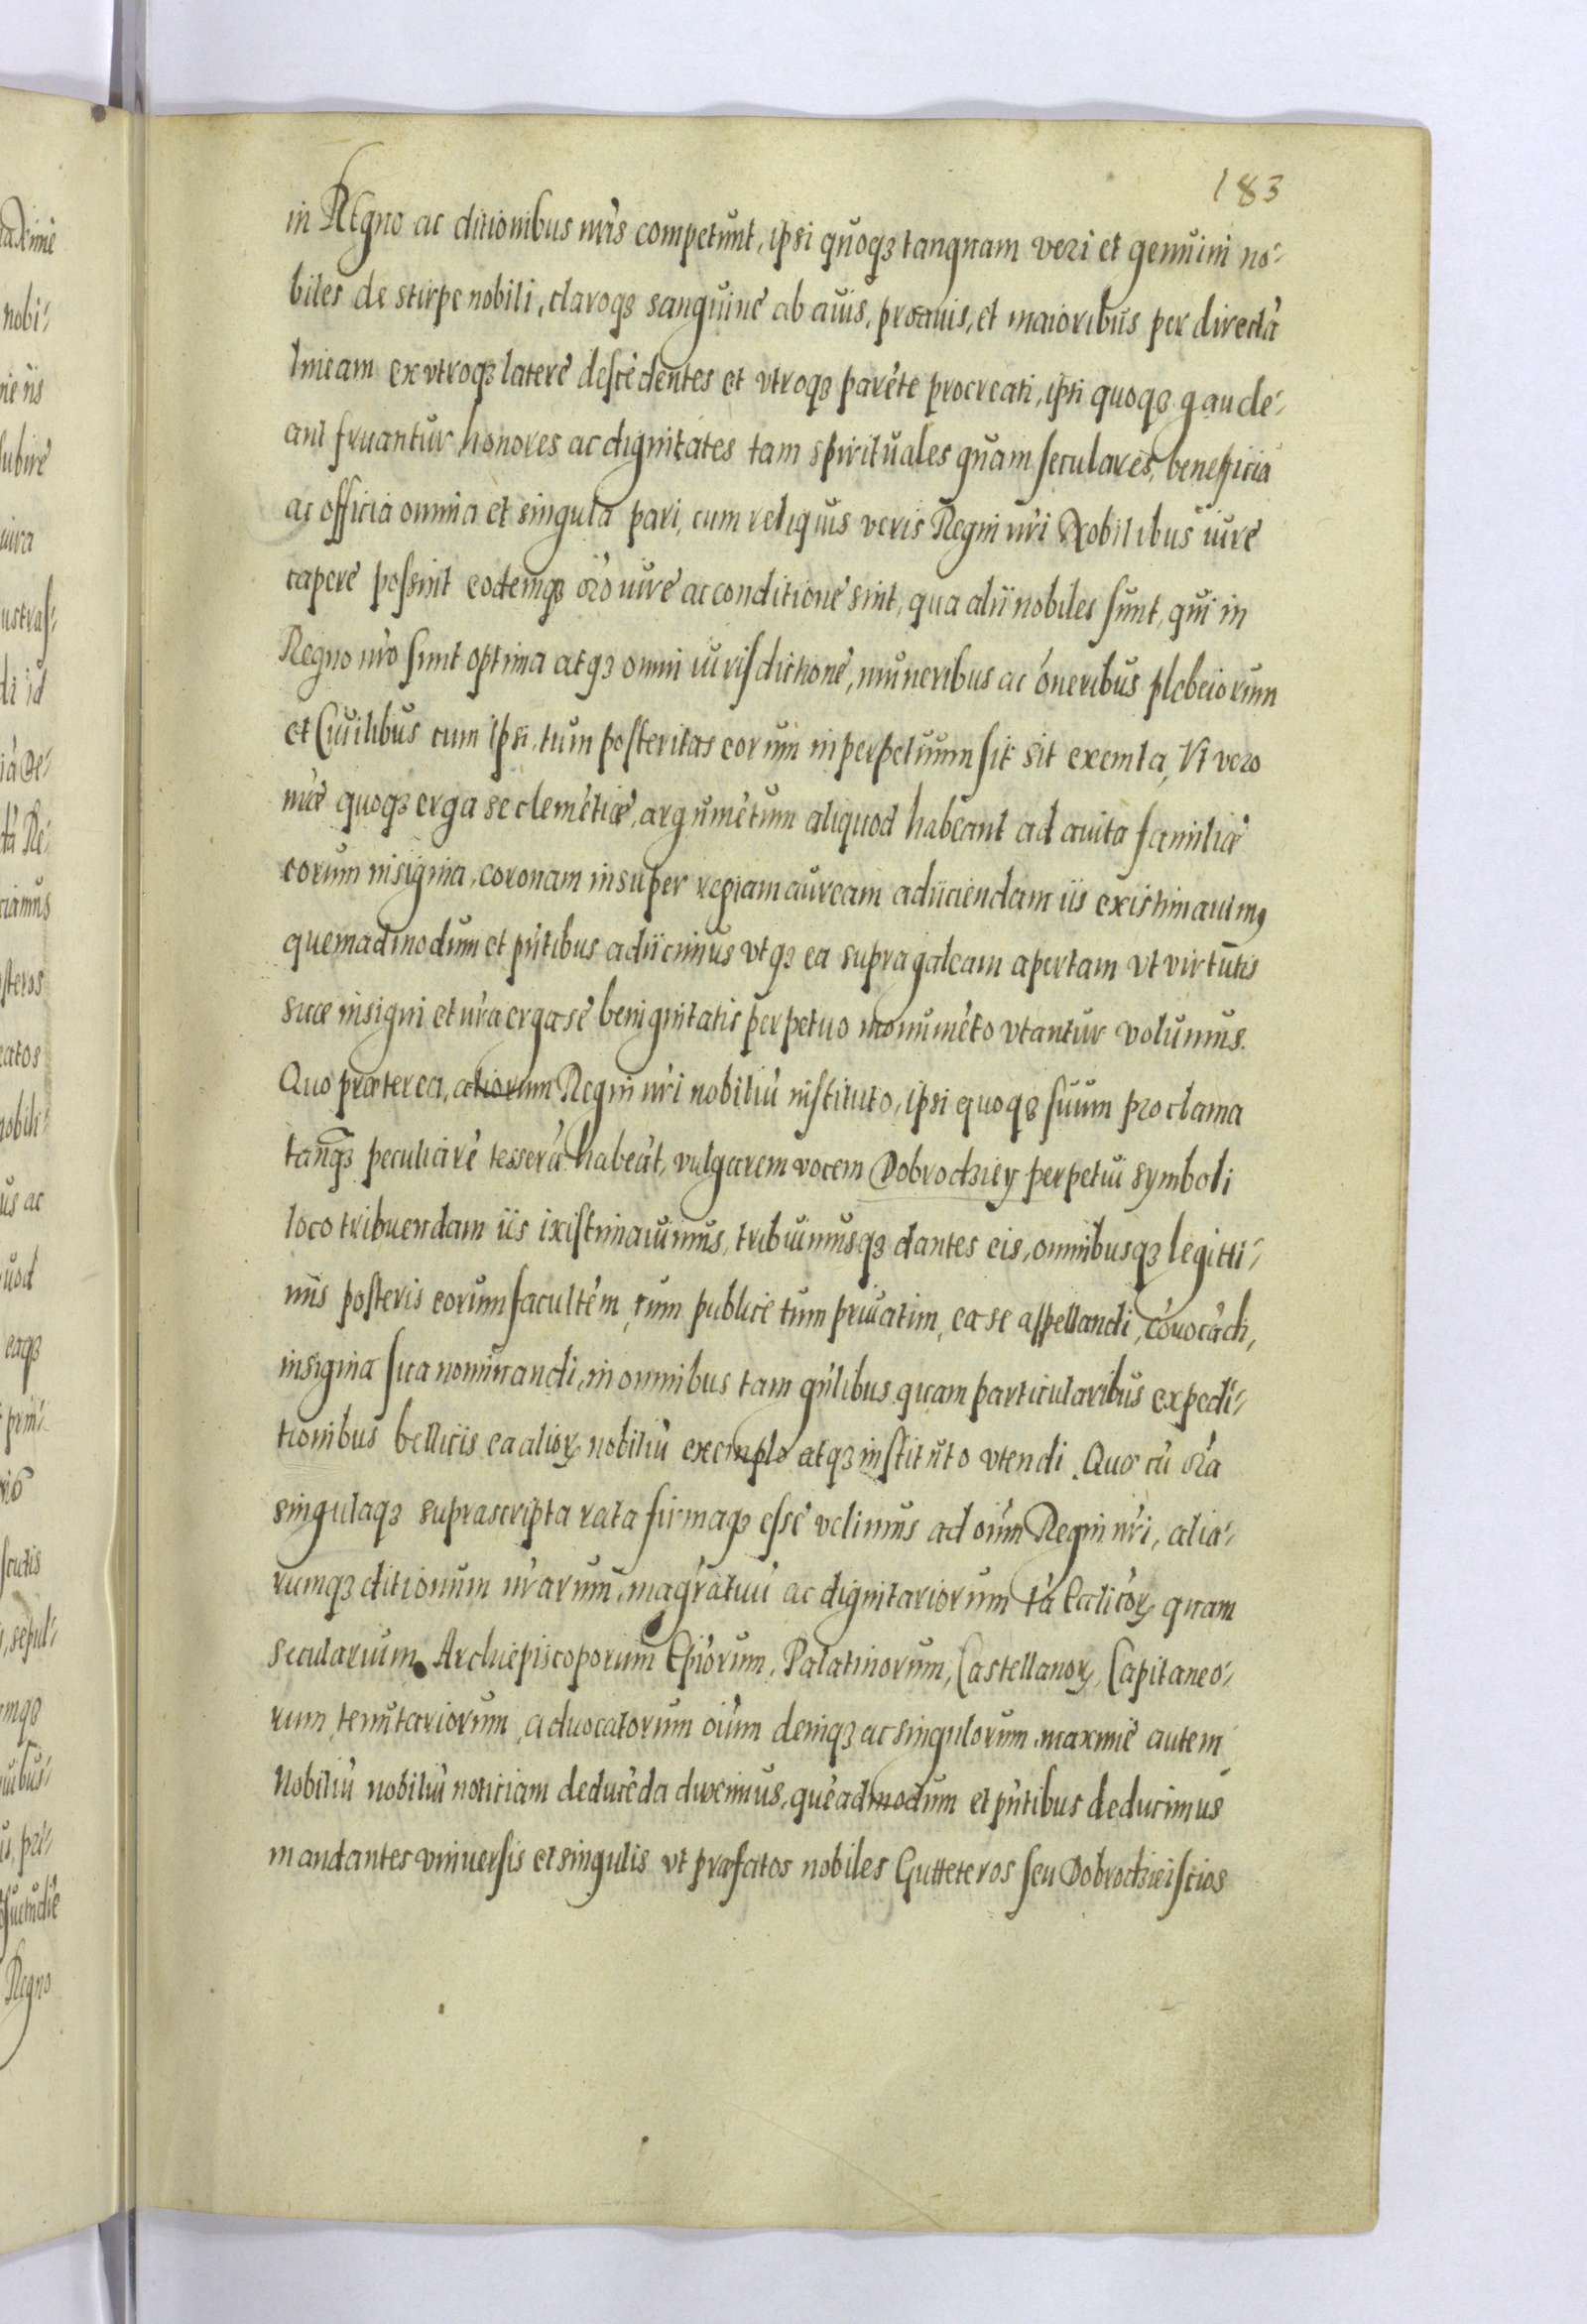 183
in REgno ac ditionibus nr̃is competunt, ipsi quoq3 tanquam veri et genuini no-
biles de stirpe nobili, claroq3 sanguine ab auis, proauis, et maioribus per directã
lineam ex vtroq3 latere descẽdentes et vtroq3 parẽte procreati, ipsi quoq3 gaude-
ant fruantur honores ac dignitates tam spirituales quam seculares, benefficia
ac officia omnia et singula pari, cum reliquis veris Regni nr̃i Nobilibus iure
capere possint eodemq3 or̃o iure ac conditione sint, qua alii nobiles sunt, qui in
Regno nr̃o sunt optima atq3 omni iurisdictione, muneribus ac oneribus plebeiorum
et Ciuilibus cum ipsi, tum posteritas eorum in perpetuum sit sit exemta, Vt vero
nr̃æ quoq3 erga se clemẽtiæ, argumẽtum aliquod habeant ad auita familiæ
eorum insignia, coronam insuper regiam auream adiiciendam iis existimauimus
quemadmodum et pñtibus adiicimus vtq3 ea supra galeam apertam vt virtutis
suæ insigni et nr̃a erga se benignitatis perpetuo monumẽto vtantur volumus.
Quo præterea, aliorum Regni nr̃i nobiliũ instituto, ipsi quoq3 suum proclama
tanq3 peculiare tesserã habeãt, vulgarem vocem Dobrodziey perpetui symboli
loco tribuendam iis existimauimus, tribuimusq3 dantes eis, omnibusq3 legitti-
mis posteris eorum facultẽm, tum publice tum priuatim, ea se appellandi, cõuocãdi,
insignia sua nominandi, in omnibus tam gñlibus quam particularibus expedi-
tionibus bellicis ea alioꝝ nobiliũ exemplo atq3 instituto vtendi. Quo cũ oĩa
singulaq3 suprascripta rata firmaq3 esse velimus ad oĩum Regni nr̃i, alia-
rumq3 ditionum nr̃arum, magr̃atuũ ac dignitariorum tã Ecalicõꝝ quam
secularium, Archiepiscoporum Ep̃orum, Palatinorum, Castellanoꝝ, Capitaneo-
rum, tenutariorum, aduocatorum oĩum deniq3 ac singulorum, maxime autem
Nobiliũ nobiliũ noticiam deducẽda duximus, quẽadmodum et pñtibus deducimus
mandantes vniuersis et singulis vt præfatos nobiles Gutteteros seu Dobrodzieiscios